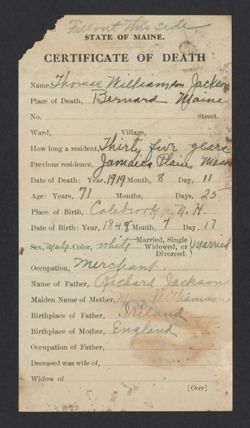 Fill out this side
STATE OF MAINE.
CERTIFICATE OF DEATH
Name, Thomas Williamson Jackson
Place of Death, Bernard Maine
No. Street.
Ward, Village,
How long a resident, Thirty five years
Previous residence, Jamaica Plain Mass
Date of Death: Year, 1919 Month, 8 Day, 11
Age: Years, 71 Months, Days, 25
Place of Birth, Colebrook N. H.
Date of Birth: Year, 1848 Month, 7 Day, 17
Sex, Male Color, white Married, Single Widowed, or Divorced. Married
Occupation, Merchant.
Name of Father, Richard Jackson
Maiden Name of Mother,
Birthplace of Father, Ireland
Birthplace of Mother, England
Occupation of Father,
Deceased was wife of,
Widow of
[Over]